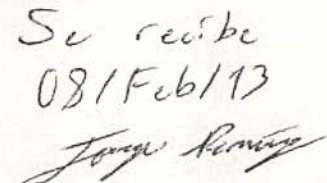 Se recibe
08/Feb/13
Jorge Ramírez